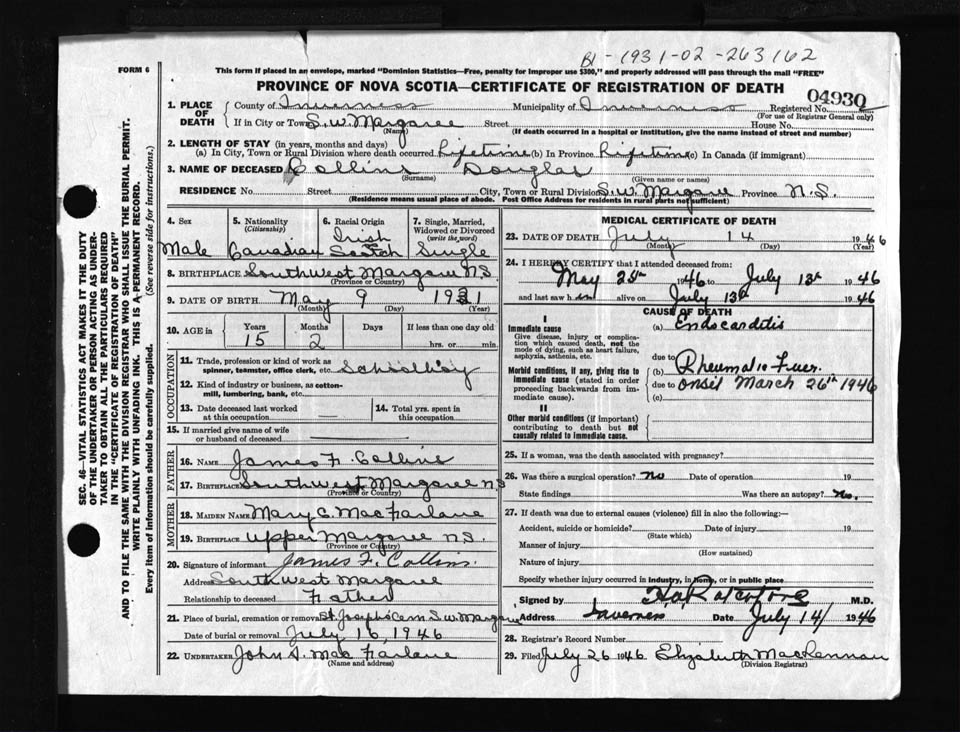 B1-1931-02-263162
FORM 6
This form if placed in an envelope, marked "Dominion Statistics—Free, penalty for improper use $300," and properly addressed will pass through the mail "FREE"
PROVINCE OF NOVA SCOTIA—CERTIFICATE OF REGISTRATION OF DEATH
04930
1. PLACE OF DEATH County of Inverness Municipality of Inverness Registered No.
(For use of Registrar General only)
If in City or Town S.W. Margaree Street House No.
(Name) (If death occurred in a hospital or institution, give the name instead of street and number)
2. LENGTH OF STAY (in years, months and days)
(a) In City, Town or Rural Division where death occurred Lifetime (b) In Province Lifetime (c) In Canada (if immigrant)
3. NAME OF DECEASED Collins Douglas
(Surname) (Given name or names)
RESIDENCE No. Street City, Town or Rural Division S.W. Margaree Province N.S.
(Residence means usual place of abode. Post Office Address for residents in rural parts not sufficient)
4. Sex 5. Nationality 6. Racial Origin 7. Single, Married, Widowed or Divorced
(Citizenship) (write the word)
Irish
Male Canadian Scotch Single
8. BIRTHPLACE Southwest Margaree N.S
(Province or Country)
9. DATE OF BIRTH May 9 1931
(Month) (Day) (Year)
10. AGE in Years Months Days If less than one day old
15 2 hrs. or min.
OCCUPATION
11. Trade, profession or kind of work as spinner, teamster, office clerk, etc. Schoolboy
12. Kind of industry or business, as cotton-mill, lumbering, bank, etc.
13. Date deceased last worked at this occupation — 14. Total yrs. spent in this occupation
15. If married give name of wife or husband of deceased
FATHER
16. NAME James F. Collins
17. BIRTHPLACE Southwest Margaree N.S
(Province or Country)
MOTHER
18. MAIDEN NAME Mary C. MacFarlane
19. BIRTHPLACE Upper Margaree N.S.
(Province or Country)
20. Signature of informant James F. Collins
Address Southwest Margaree
Relationship to deceased Father
21. Place of burial, cremation or removal St. Joseph's Cem S.W. Margaree
Date of burial or removal July 16, 1946
22. UNDERTAKER John A. MacFarlane
(Name and address)
MEDICAL CERTIFICATE OF DEATH
23. DATE OF DEATH July 14 1946
(Month) (Day) (Year)
24. I HEREBY CERTIFY that I attended deceased from:
May 25th 1946 to July 13th 1946
and last saw him alive on July 13th 1946
CAUSE OF DEATH
I
Immediate cause (a) Endocarditis
Give disease, injury or complication which caused death, not the mode of dying, such as heart failure, asphyxia, asthenia, etc.
due to
Morbid conditions, if any, giving rise to immediate cause (stated in order proceeding backwards from immediate cause).
(b) Rheumatic Fever.
due to onset March 26th 1946
(c)
II
Other morbid conditions (if important) contributing to death but not causally related to immediate cause.
25. If a woman, was the death associated with pregnancy?
26. Was there a surgical operation? no Date of operation 19
State findings Was there an autopsy? no.
27. If death was due to external causes (violence) fill in also the following:—
Accident, suicide or homicide? Date of injury 19
(State which)
Manner of injury
(How sustained)
Nature of injury
Specify whether injury occurred in industry, in home, or in public place
Signed by M.D.
Inverness Date July 14/ 1946
28. Registrar's Record Number
29. Filed July 26 1946 Elizabeth MacLennan
(Division Registrar)
SEC. 46—VITAL STATISTICS ACT MAKES IT THE DUTY
OF THE UNDERTAKER OR PERSON ACTING AS UNDER-
TAKER TO OBTAIN ALL THE PARTICULARS REQUIRED
IN THE "CERTIFICATE OF REGISTRATION OF DEATH"
AND TO FILE THE SAME WITH THE DIVISION REGISTRAR WHO SHALL ISSUE THE BURIAL PERMIT.
WRITE PLAINLY WITH UNFADING INK. THIS IS A PERMANENT RECORD.
Every item of information should be carefully supplied. (See reverse side for instructions.)